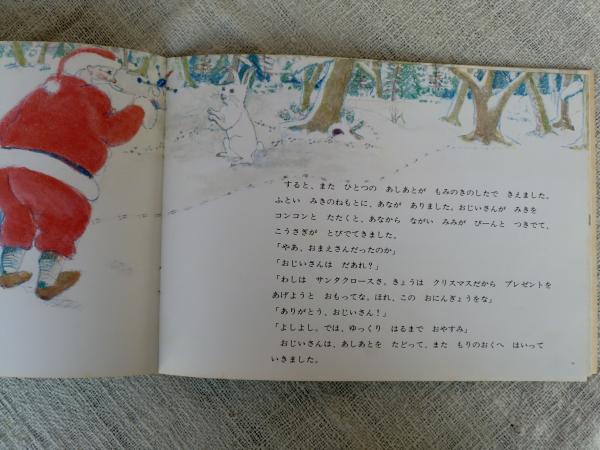 すると、また　ひとつの　あしあとが　もみのきのしたで　きえました。
ふとい　みきのねもとに、あなが　ありました。おじいさんが　みきを
コンコンと　たたくと、あなから　ながい　みみが　ぴーんと　つきでて、
こうさぎが　とびでてきました。
「やあ、おまえさんだったのか」
「おじいさんは　だあれ？」
「わしは　サンタクロースさ。きょうは　クリスマスだから　プレゼントを
あげようと　おもってな。ほれ、この　おにんぎょうをな」
「ありがとう、おじいさん！」
「よしよし。では、ゆっくり　はるまで　おやすみ」
おじいさんは、あしあとを　たどって、また　もりのおくへ　はいって
いきました。